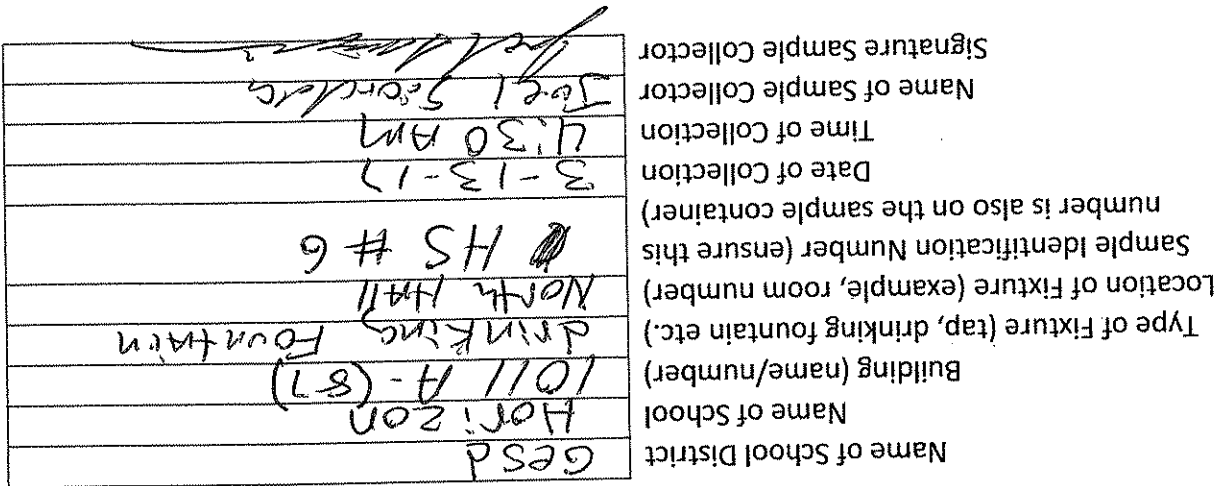 Name of School District GESd
Name of School Horizon
Building (name/number) 1011 A-(87)
Type of Fixture (tap, drinking fountain etc.) drinking Fountain
Location of Fixture (example, room number) North HAll
Sample Identification Number (ensure this
number is also on the sample container) HS # 6
Date of Collection 3-13-17
Time of Collection 4:30 Am
Name of Sample Collector Joel
Signature Sample Collector